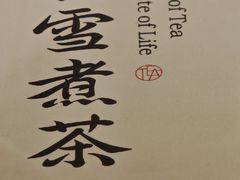 雪煮茶
of Tea
te of Life
TEA